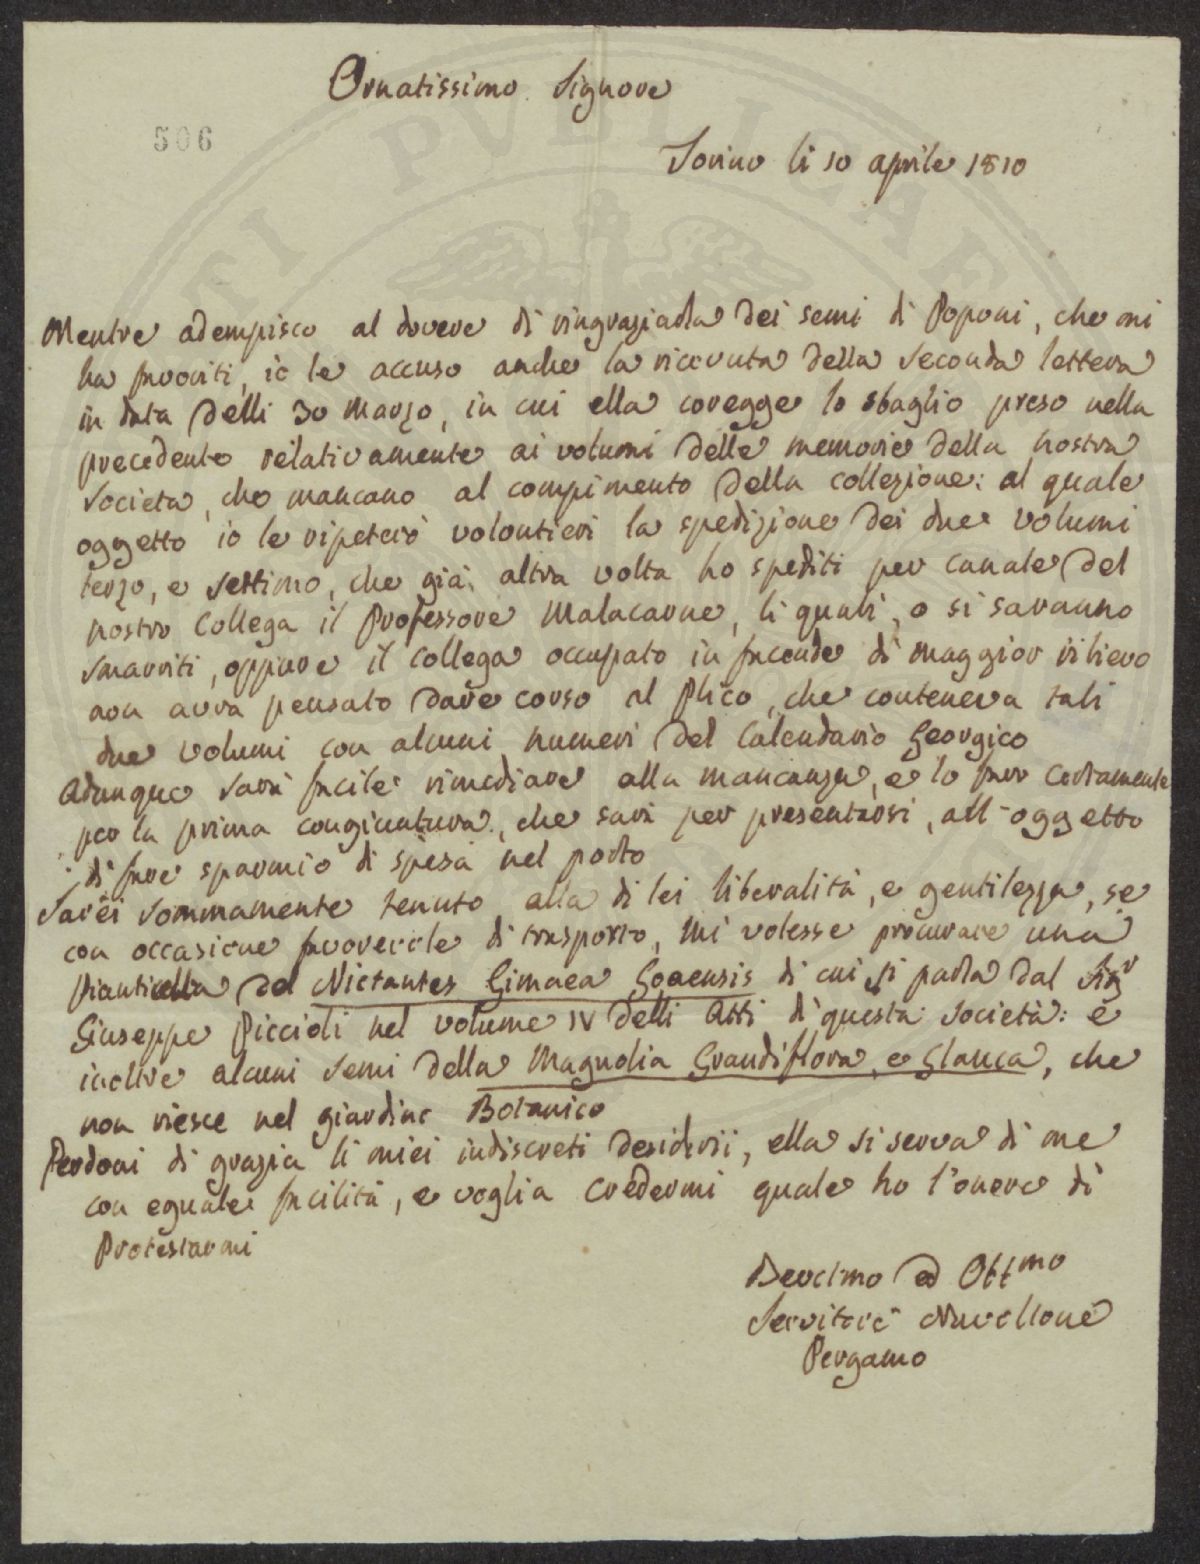 Ornatissimo Signore
506
Torino li 10 aprile 1810
Mentre adempisco al dovere di ringraziarla dei semi di Poponi, che mi
ha favoriti, io le accuso anche la ricevuta della seconda lettera
in data delli 30 Marzo, in cui ella coregge lo sbaglio preso nella
precedente relativamente ai volumi delle memorie della nostra
società, che mancano al compimento della collezione: al quale
oggetto io le ripeterò volontieri la spedizione dei due volumi
terzo, e settimo, che già altra volta ho spediti per canale del
nostro Collega il Professore Malacarne, li quali, o si saranno
smarriti, oppure il collega occupato in facende di maggior rilievo
non avrà pensato dare corso al Plico, che conteneva tali
due volumi con alcuni numeri del Calendario Georgico
Adunque sarà facile rimediare alla mancanza, e lo farò certamente
per la prima congiuntura, che sarà per presentarsi, all'oggetto
di fare sparmio di spesa nel porto
Sarei sommamente tenuto alla di lei liberalità, e gentilezza, se
con occasione favorevole di trasporto, mi volesse procurare una
pianticella del Nictantes Gimaea Goaensis di cui si parla dal Sigr
Giuseppe Piccioli nel volume IV delli Atti di questa società: e
inoltre alcuni semi della Magnolia Grandiflora, e Glauca, che
non riesce nel giardino Botanico
Perdoni di grazia li miei indiscreti desiderii, ella si serva di me
con eguale facilità, e voglia credermi quale ho l'onore di
Protestarmi
Devotmo ed Obbmo
Servitore Nuvellone
Pergamo
PVBLICAE